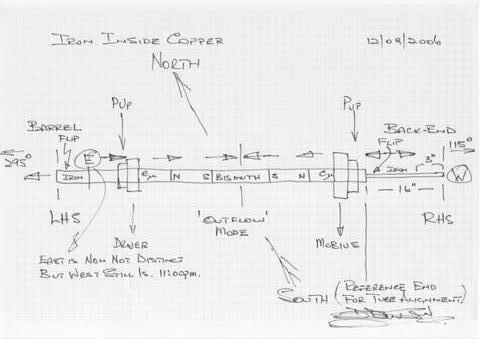 IRON INSIDE COPPER
12/09/2006
NORTH
PUP
PUP
BARREL
FLIP
BACK-END
FLIP
295°
E
115°
3"
IRON
Cμ
N
S
BISMUTH
S
N
Cμ
IRON
W
16"
LHS
'OUTFLOW'
MODE
RHS
DRIVER
MOBIUS
EAST IS NOW NOT DISTINCT
BUT WEST STILL IS. 11:00PM.
SOUTH
(REFERENCE END
FOR TUBE ALIGNMENT.)